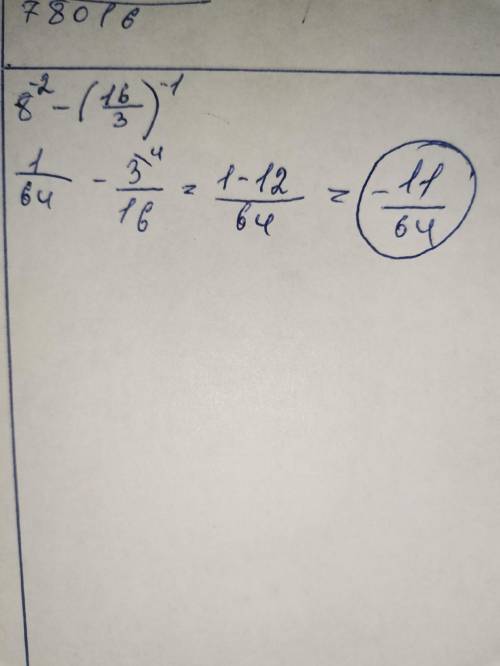 78016
8⁻² - (16/3)⁻¹
1/64 - 3⁴/16 = 1-12/64 = -11/64